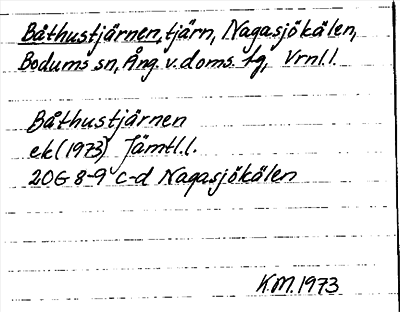 Båthustjärnen, tjärn, Nagasjökälen,
Bodums sn, Ång. v. doms. tg, Vrnl.l.
Båthustjärnen
ek (1973) Jämtl.l.
20G 8-9 c-d Nagasjökälen
K.M. 1973